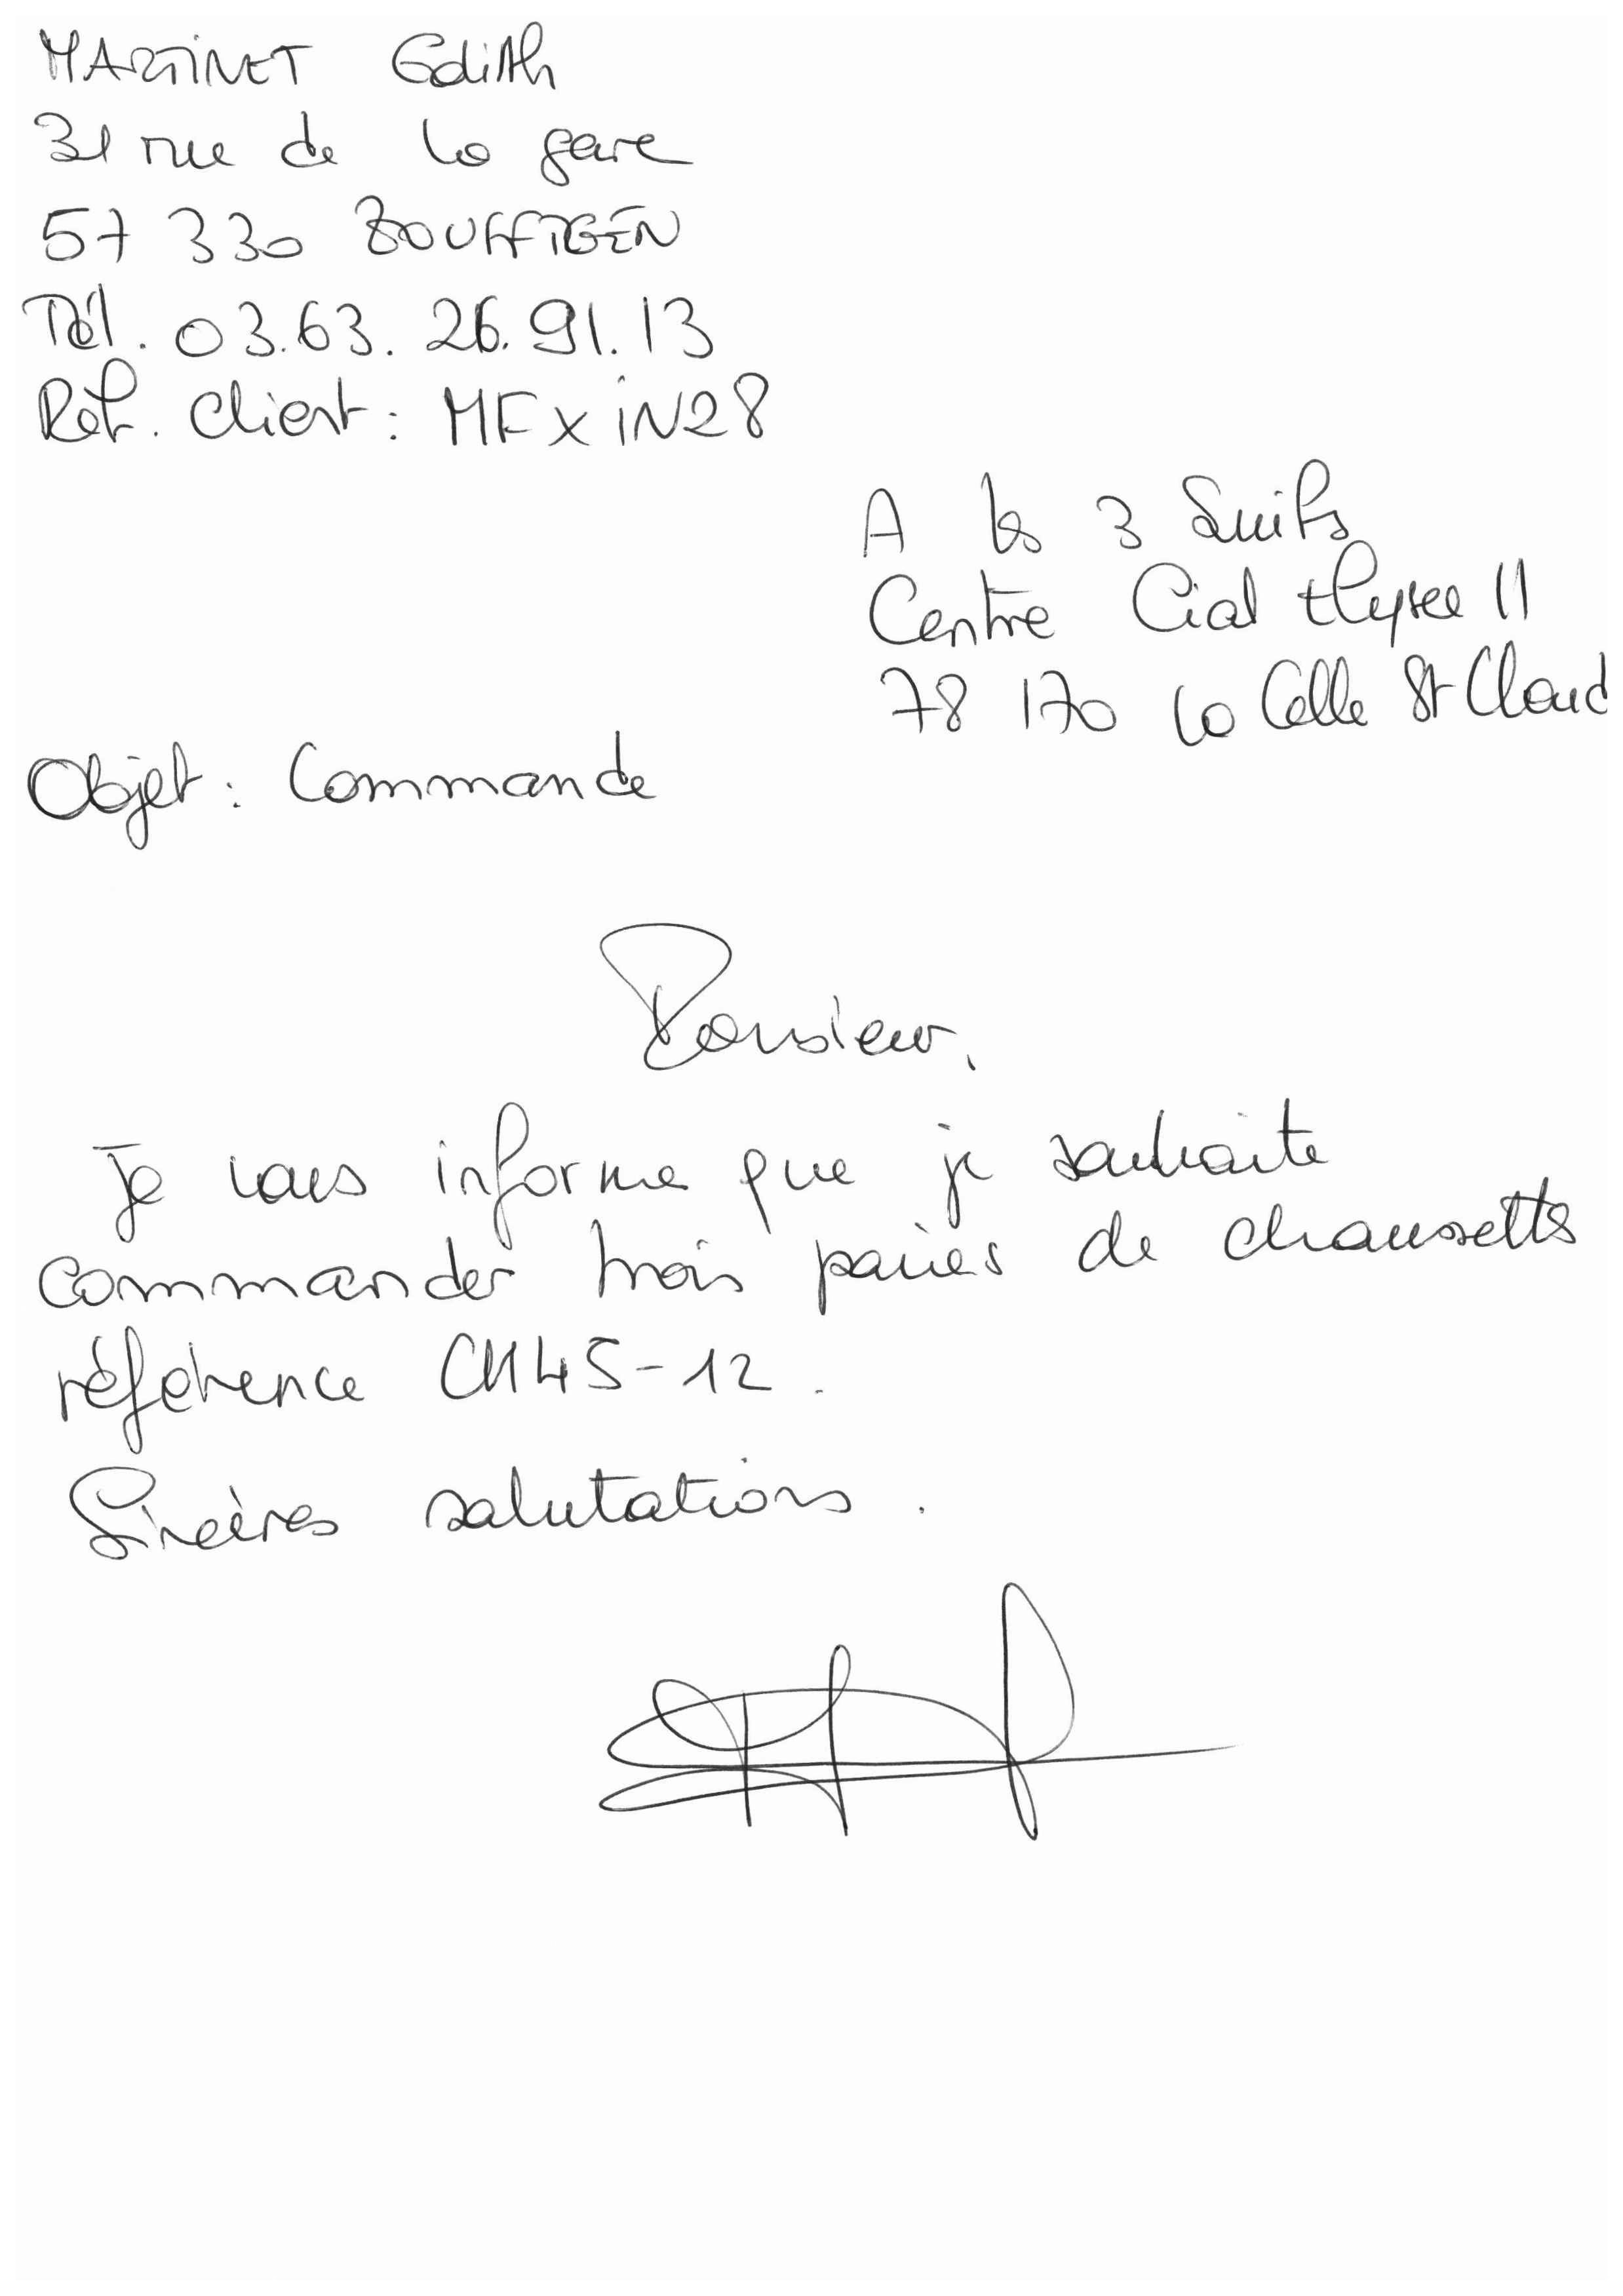 MARTINET Edith
31 rue de la gare
57 330
Tél. 03.63.26.91.13
Réf. Client : MFXIN28
A les 3 Suiss
Centre Cial Elysee II
78 170 La Celle St Cloud
Objet : Commande
Monsieur,
Je vous informe que je souhaite
commander trois paires de chaussettes
référence CH45-12.
Sincères salutations.